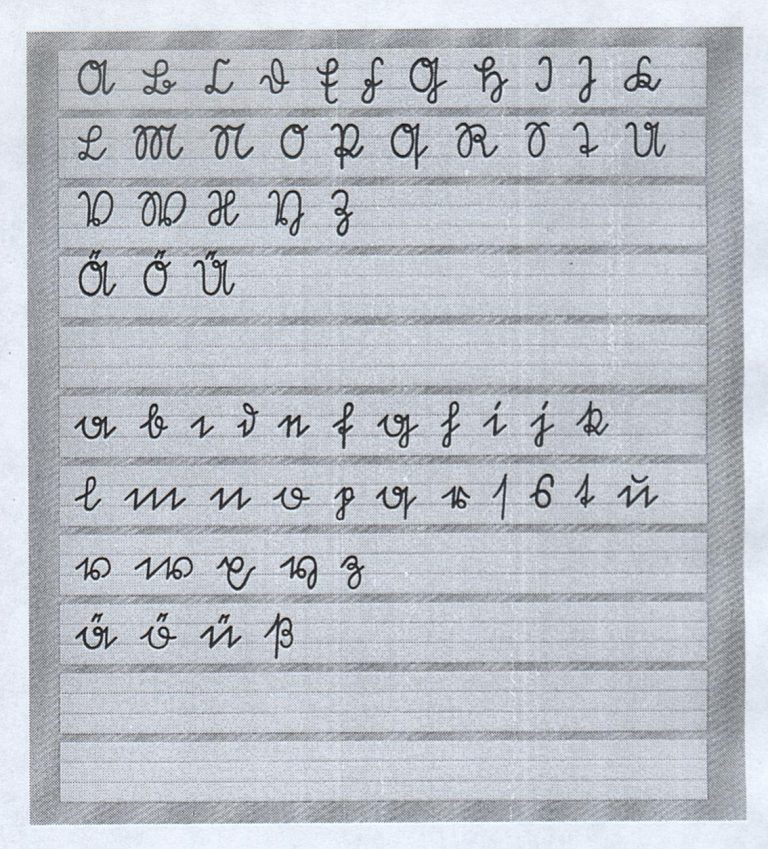 A B C D E F G H I J K
L M N O P Q R S T U
V W X Y Z
Ä Ö Ü
a b c d e f g h i j k
l m n o p q r ſ s t u
v w x y z
ä ö ü ß